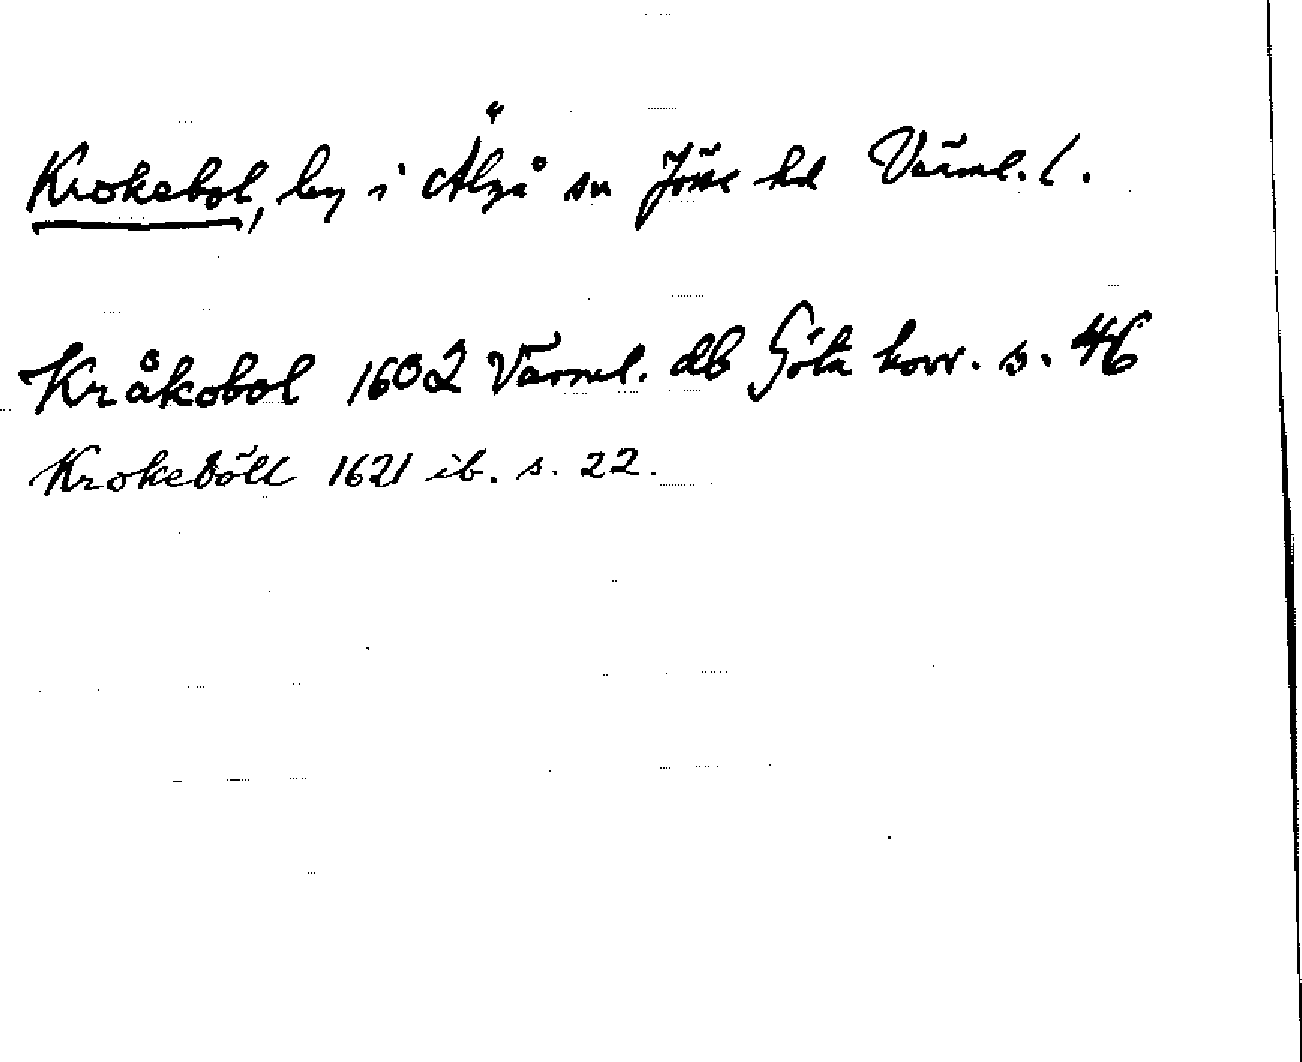 Krokebol, by i Älgå sn Jösse hd Värml. l.
Kråkobol 1602 Värml. db Göta hovr. s. 46
Krokeböll 1621 ib. s. 22.